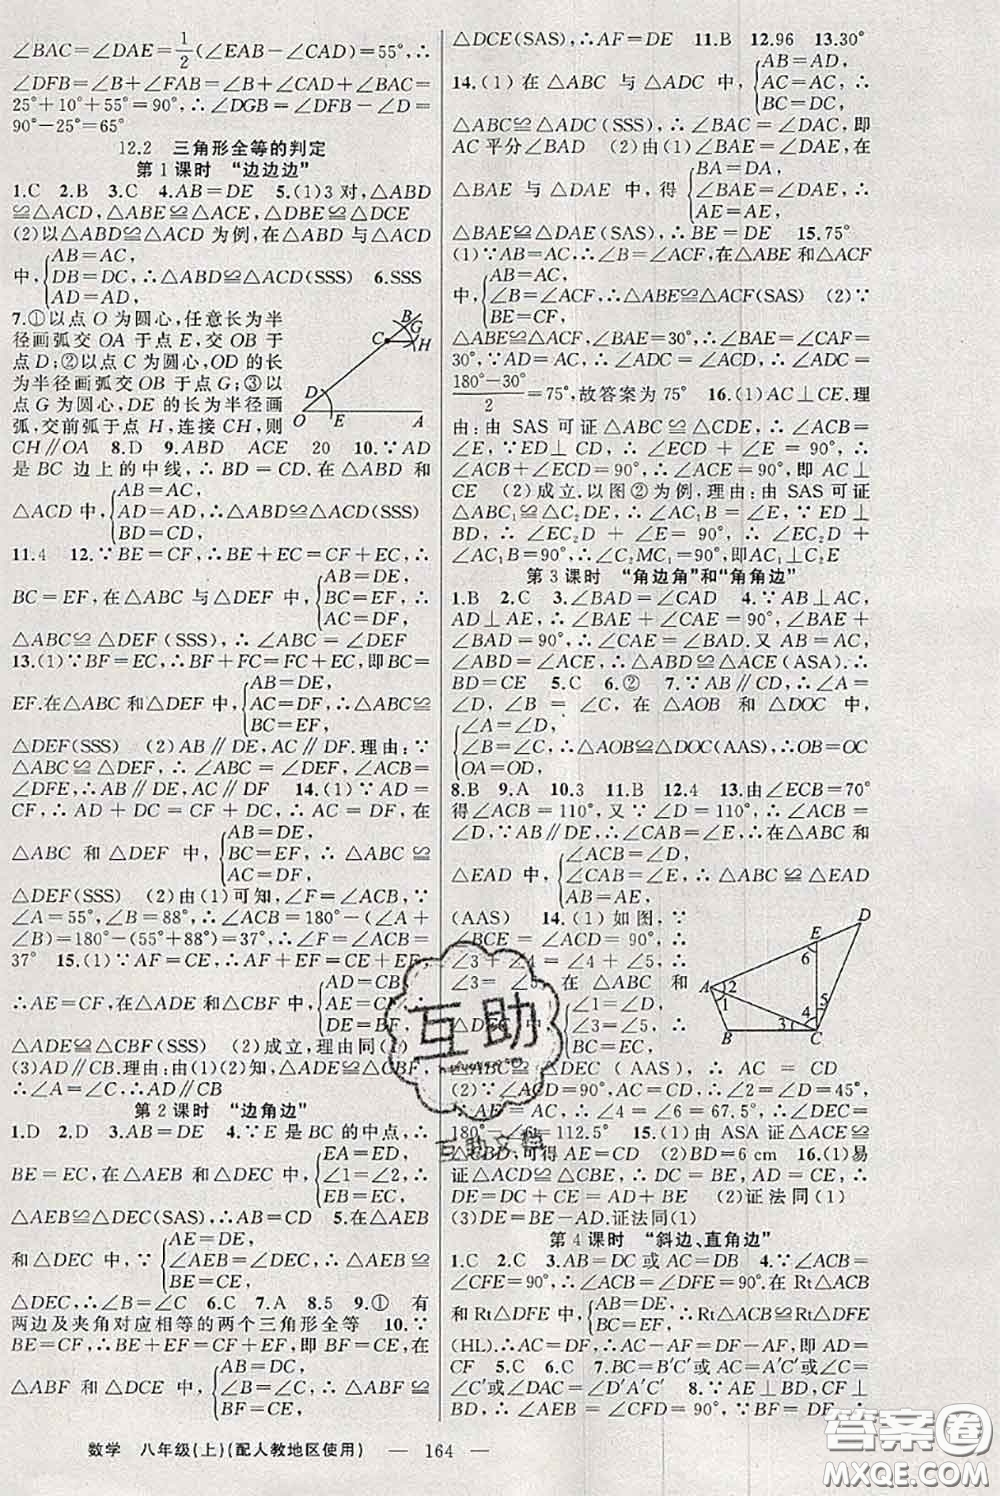 ∠BAC=∠DAE=1/2(∠EAB-∠CAD)=55°,∴
∠DFB=∠B+∠FAB=∠B+∠FAC+∠BAC=
25°+10°+55°=90°,∴∠DGB=∠DFB-∠D=
90°-25°=65°
12.2 三角形全等的判定
第1课时 “边边边”
1.C 2.B 3.C 4.AB=DE 5.(1)3对,△ABD
≌△ACD,△ABE≌△ACE,△DBE≌△DCE
(2)以△ABD≌△ACD为例,在△ABD与△ACD
AB=AC,
中,DB=DC,∴△ABD≌△ACD(SSS) 6.SSS
AD=AD,
7.①以点O为圆心,任意长为半
径画弧交OA于点E,交OB于
点D;②以点C为圆心,OD的长
为半径画弧交OB于点G;③以
点G为圆心,DE的长为半径画
弧,交前弧于点H,连接CH,则
B
G
C
H
D
O
E
A
CH∥OA 8.D 9.ABD ACE 20 10.∵AD
是BC边上的中线,∴BD=CD.在△ABD和
AB=AC,
△ACD中,AD=AD,∴△ABD≌△ACD(SSS)
BD=CD,
11.4 12.∵BE=CF,∴BE+EC=CF+EC,∴
AB=DE,
BC=EF,在△ABC与△DEF中,BC=EF,∴
AC=DF,
△ABC≌△DEF(SSS),∴∠ABC=∠DEF
13.(1)∵BF=EC,∴BF+FC=FC+EC,即BC=
AB=DE,
EF.在△ABC和△DEF中,AC=DF,∴△ABC≌
BC=EF,
△DEF(SSS) (2)AB∥DE,AC∥DF.理由:∵
△ABC≌△DEF,∴∠ABC=∠DEF,∠ACB=
∠DFE,∴AB∥DE,AC∥DF 14.(1)∵AD=
CF,∴AD+DC=CF+DC,∴AC=DF,在
AB=DE,
△ABC和△DEF中,BC=EF,∴△ABC≌
AC=DF,
△DEF(SSS) (2)由(1)可知,∠F=∠ACB,∵
∠A=55°,∠B=88°,∴∠ACB=180°-(∠A+
∠B)=180°-(55°+88°)=37°,∴∠F=∠ACB=
37° 15.(1)∵AF=CE,∴AF+EF=CE+EF,
AD=CB
∴AE=CF,在△ADE和△CBF中,AE=CF,
DE=BF,
△ADE≌△CBF(SSS) (2)成立,理由同(1)
(3)AD∥CB.理由:由(1)(2)知,△ADE≌△CBF,
∴∠A=∠C,∴AD∥CB
第2课时 “边角边”
1.D 2.D 3.AB=DE 4.∵E是BC的中点,∴
EA=ED,
BE=EC,在△ABE和△DEC中,∠AEB=∠DEC,∴
EB=EC,
△AEB≌△DEC(SAS),∴AB=CD 5.在△AEB
AE=DE,
和△DEC中,∵∠AEB=∠DEC,∴△AEB≌
BE=CE,
△DEC,∴∠B=∠C 6.C 7.A 8.5 9.① 有
两边及夹角对应相等的两个三角形全等 10.∵
BE=CF,∴BE+EF=CF+EF,即BF=EC,
AB=DC,
在△ABF和△DCE中,∠B=∠C,∴△ABF≌
BF=CE,
△DCE(SAS),∴AF=DE 11.B 12.96 13.30°
AB=AD,
14.(1)在△ABC与△ADC中,AC=AC,∴
BC=DC,
△ABC≌△ADC(SSS),∴∠BAC=∠DAC,即
AC平分∠BAD (2)由(1)∠BAE=∠DAE.在
BA=DA,
△BAE与△DAE中,得∠BAE=∠DAE,∴
AE=AE,
△BAE≌△DAE(SAS),∴BE=DE 15.75°
(1)∵AB=AC,∴∠B=∠ACF,在△ABE和△ACF
AB=AC,
中,∠B=∠ACF,∴△ABE≌△ACF(SAS) (2)∵
BE=CF,
△ABE≌△ACF,∠BAE=30°,∴∠BAE=∠CAF=
30°,∵AD=AC,∴∠ADC=∠ACD,∴∠ADC=
180°-30°/2=75°,故答案为75° 16.(1)AC⊥CE.理
由:由SAS可证△ABC≌△CDE,∴∠ACB=
∠E,∵∠ECD+∠E=90°,∴
∠ACB+∠ECD=90°,∴∠ACE=90°,即AC⊥
CE (2)成立.以图②为例,理由:由SAS可证
△ABC₁≌△C₂DE,∴∠AC₁B=∠E,∵ED⊥
BD,∴∠EC₂D+∠E=90°,∴∠EC₂D+
∠AC₁B=90°,∴∠C₂MC₁=90°,即AC₁⊥C₂E
第3课时 “角边角”和“角角边”
1.B 2.C 3.∠BAD=∠CAD 4.∵AB⊥AC,
AD⊥AE,∴∠BAE+∠CAE=90°,∠BAE+
∠BAD=90°,∴∠CAE=∠BAD.又AB=AC,
∠ABD=∠ACE,∴△ABD≌△ACE(ASA).∴
BD=CE 5.C 6.② 7.∵AB∥CD,∴∠A=
∠D,∠B=∠C,在△AOB和△DOC中,
∠A=∠D,
∠B=∠C,∴△AOB≌△DOC(AAS),∴OB=OC
OA=OD,
8.B 9.A 10.3 11.B 12.4 13.由∠ECB=70°
得∠ACB=110°,又∵∠D=110°,∴∠ACB=
∠D,∵AB∥DE,∴∠CAB=∠E,∴在△ABC和
∠ACB=∠D,
△EAD中,∠CAB=∠E,∴△ABC≌△EAD
AB=AE,
(AAS) 14.(1)如图,∵
∠BCE=∠ACD=90°,∴
∠3+∠4=∠4+∠5,∴
∠3=∠5,在△ABC和
∠1=∠D,
△DEC中,∠3=∠5,∴
BC=EC,
△ABC≌△DEC(AAS),∴AC=CD
D
E
6
A
2
1
4
5
3
B
C
(2)∵∠ACD=90°,AC=CD,∴∠2=∠D=45°,
∵AE=AC,∴∠4=∠6=67.5°,∴∠DEC=
180°-∠6=112.5° 15.(1)由ASA证△ACE≌
△CBD,可得AE=CD (2)BD=6 cm 16.(1)易
证△ACD≌△CBE,∴DC=BE,AD=CE,∴
DE=DC+CE=AD+BE (2)证法同(1)
(3)DE=BE-AD.证法同(1)
第4课时 “斜边、直角边”
1.C 2.C 3.AB=DC或AC=DB 4.∵∠ACB=
∠CFE=90°,∴∠ACB=∠DFE=90°.在Rt△ACB
和Rt△DFE中,AB=DE,BC=FE,∴Rt△ACB≌Rt△DFE
(HL).∴AC=DF,∴AC-AF=DF-AF,即AD=
CF 5.C 6.C 7.BC=B'C'或AC=A'C'或∠BAC=
∠B'A'C'或∠DAC=∠D'A'C' 8.∵AE⊥BD,CF
⊥BD,
数学 八年级(上)(配人教地区使用) — 164 —
互助
互助文档
答案圈
MXQE.COM